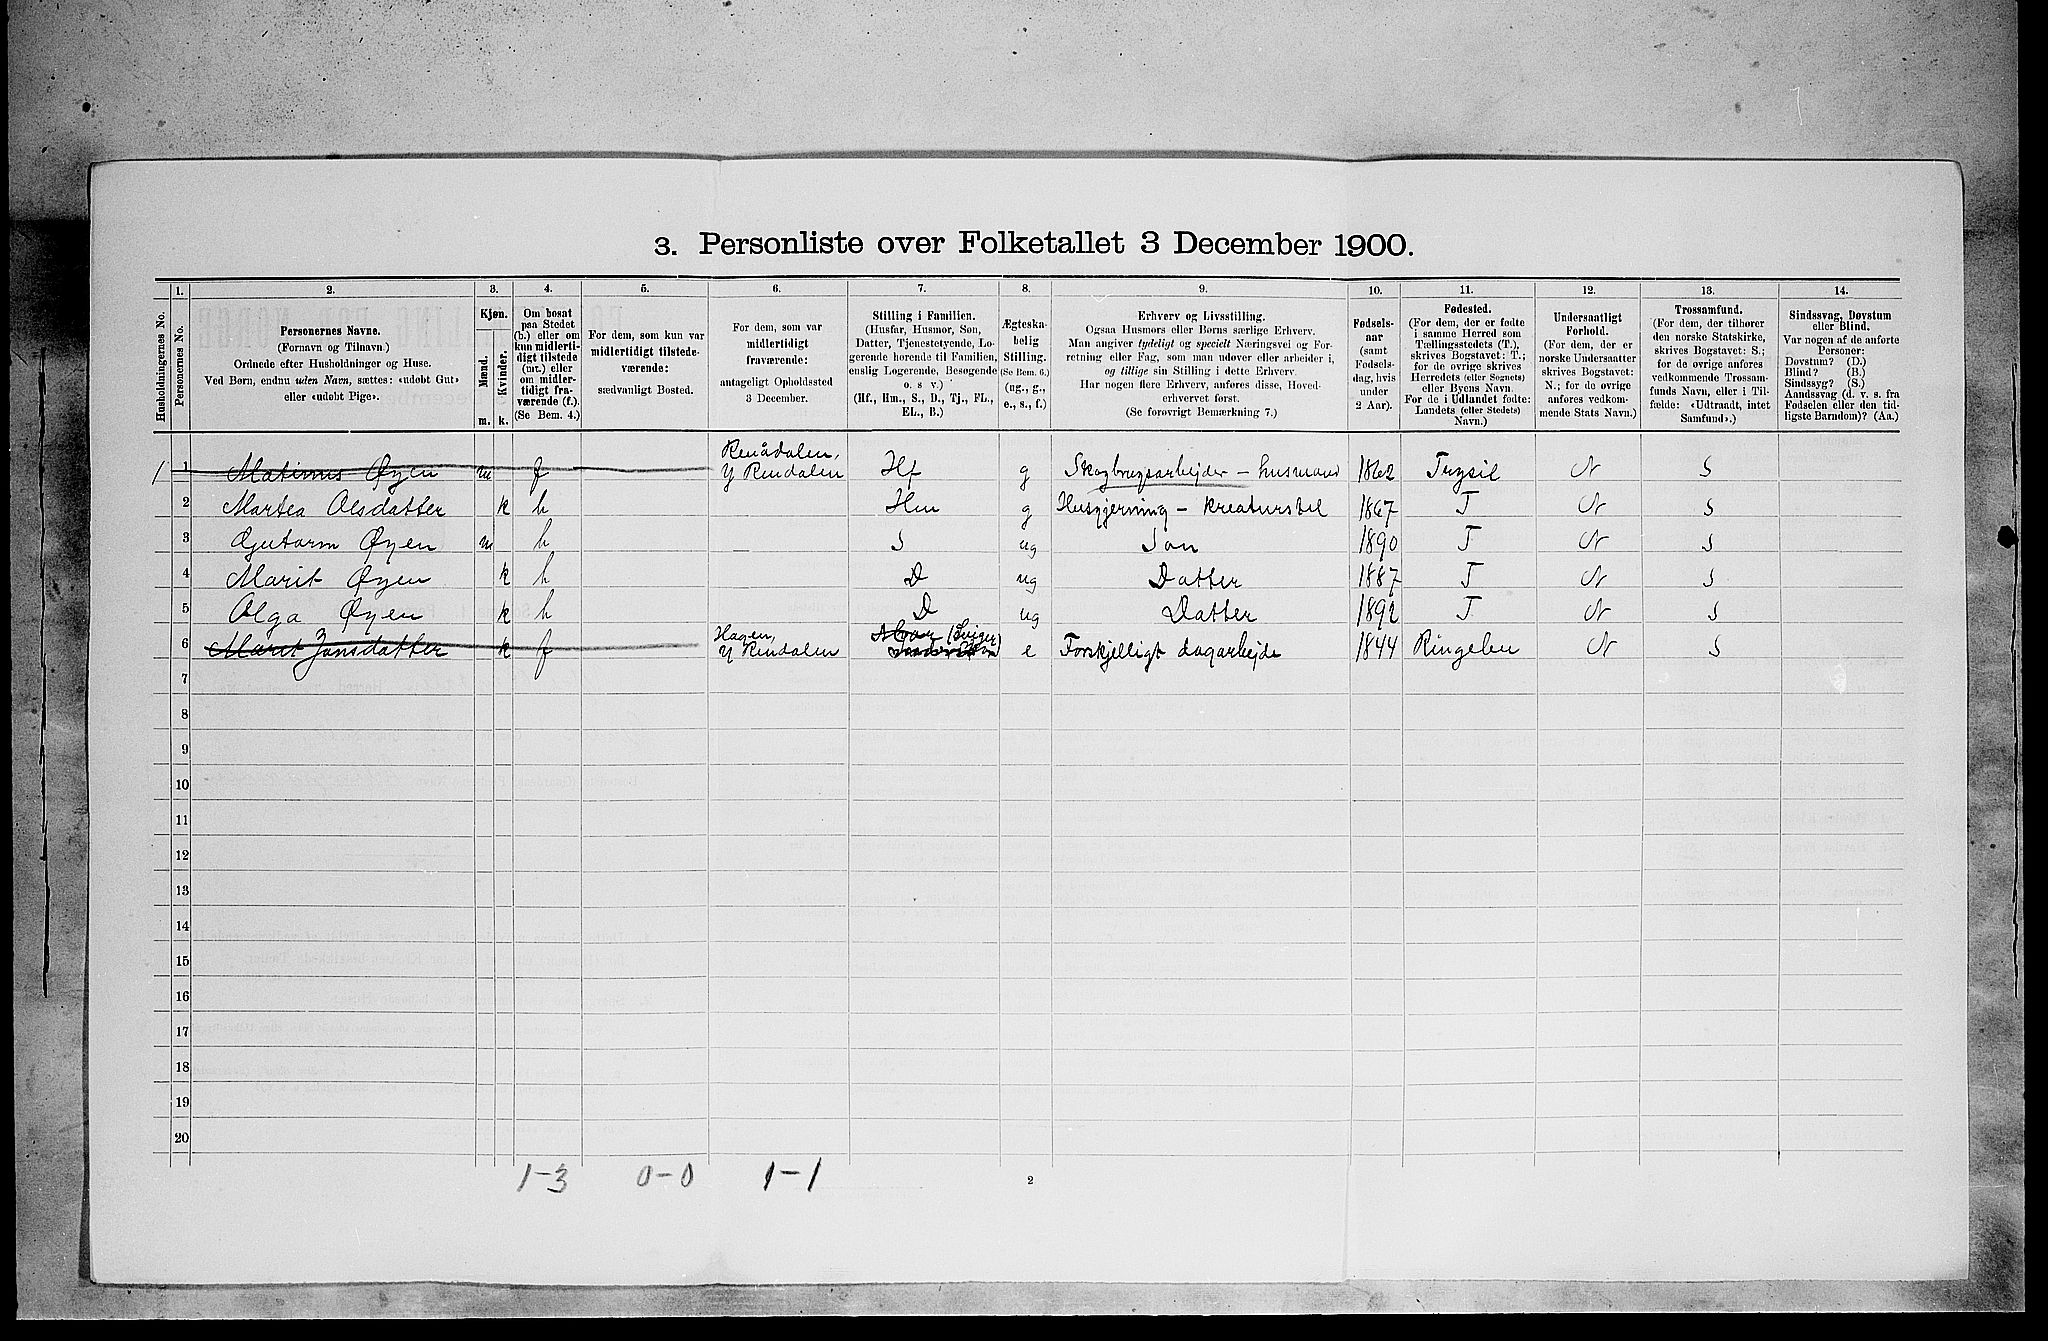 3. Personliste over Folketallet 3 December 1900.
1. 2. 3. 4. 5. 6. 7. 8. 9. 10. 11. 12. 13. 14.
Husholdningernes No.
Personernes No.
Personernes Navne.
(Fornavn og Tilnavn.)
Ordnede efter Husholdninger og Huse.
Ved Børn, endnu uden Navn, sættes: «udøbt Gut»
eller «udøbt Pige».
Kjøn.
Mænd.
Kvinder.
m. k.
Om bosat
paa Stedet
(b.) eller om
kun midlerti-
digt tilstede
(mt.) eller
om midler-
tidigt fra-
værende (f.).
(Se Bem. 4.)
For dem, som kun var
midlertidigt tilstede-
værende:
sædvanligt Bosted.
For dem, som var
midlertidigt
fraværende:
antageligt Opholdssted
3 December.
Stilling i Familien.
(Husfar, Husmor, Søn,
Datter, Tjenestetyende, Lo-
gerende hørende til Familien,
enslig Logerende, Besøgende
o. s v.)
(Hf., Hm., S., D., Tj., FL.,
EL., B.)
Ægteska-
belig
Stilling.
(Se Bem. 6.)
(ug., g.,
e., s., f.)
Erhverv og Livsstilling.
Ogsaa Husmors eller Børns særlige Erhverv.
Man angiver tydeligt og specielt Næringsvei og For-
retning eller Fag, som man udøver eller arbeider i,
og tillige sin Stilling i dette Erhverv.
Har nogen flere Erhverv, anføres disse, Hoved-
erhvervet først.
(Se forøvrigt Bemærkning 7.)
Fødsels-
aar
(samt
Fødsels-
dag, hvis
under
2 Aar).
Fødested.
(For dem, der er fødte
i samme Herred som
Tællingsstedets (T.),
skrives Bogstavet: T.;
for de øvrige skrives
Herredets (eller Sognets)
eller Byens Navn.
For de i Udlandet fødte:
Landets (eller Stedets)
Navn.)
Undersaatligt
Forhold.
(For dem, der er
norske Undersaatter
skrives Bogstavet:
N.; for de øvrige
anføres vedkom-
mende Stats Navn.)
Trossamfund.
(For dem, der tilhører
den norske Statskirke,
skrives Bogstavet: S.;
for de øvrige anføres
vedkommende Trossam-
funds Navn, eller i Til-
fælde: «Udtraadt, intet
Samfund».)
Sindssvag, Døvstum
eller Blind.
Var nogen af de anførte
Personer:
Døvstum? (D.)
Blind? (B.)
Sindssyg? (S.)
Aandssvag (d. v. s. fra
Fødselen eller den tid-
ligste Barndom)? (Aa.)
1 1 Matinus Øyen m f Renådalen, Y Rendalen Hf g Skogbrugsarbejder – husmand 1862 Trysil N S
2 Martea Olsdatter k b Hm g Husgjerning – kreaturstel 1867 T N S
3 Gutorm Øyen m b S ug Søn 1890 T N S
4 Marit Øyen k b D ug Datter 1887 T N S
5 Olga Øyen k b D ug Datter 1892 T N S
6 Marit Jonsdatter k f Hagen, Y Rendalen e Forskjelligt dagarbejde 1844 Ringebu N S
7
8
9
10
11
12
13
14
15
16
17
18
19
20
1–3 0–0 1–1
2